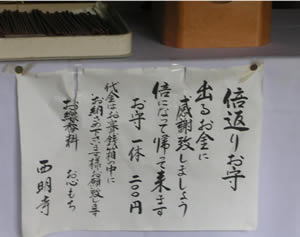 倍返りお守
出るお金に
感謝致しましょう
倍になって帰って来ます
お守一体 二〇〇円
代金はお賽銭箱の中に
お納め下さいます様お願致します
お線香料 お心もち
西明寺